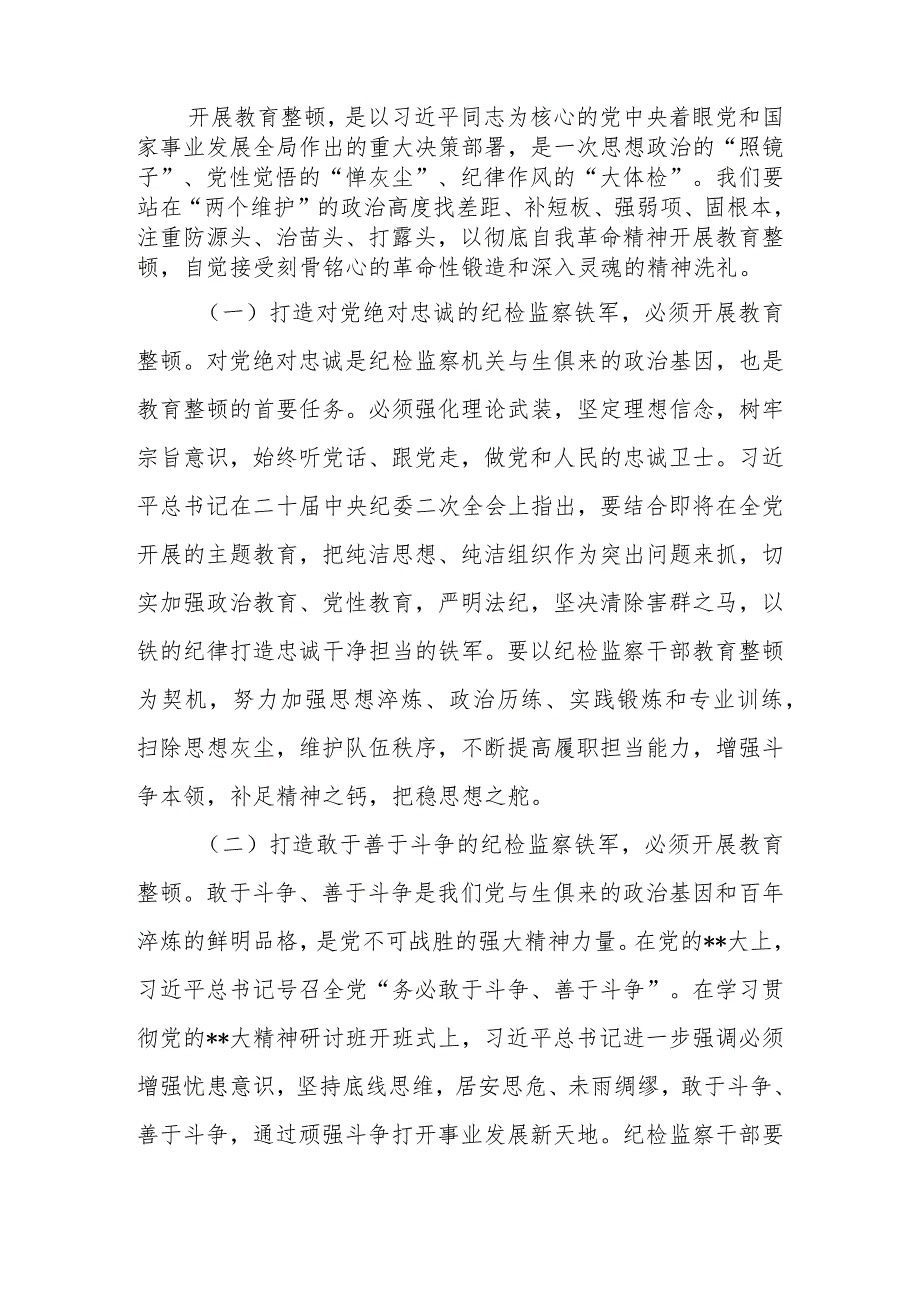 开展教育整顿，是以习近平同志为核心的党中央着眼党和国
家事业发展全局作出的重大决策部署，是一次思想政治的“照镜
子”、党性觉悟的“惮灰尘”、纪律作风的“大体检”。我们要
站在“两个维护”的政治高度找差距、补短板、强弱项、固根本，
注重防源头、治苗头、打露头，以彻底自我革命精神开展教育整
顿，自觉接受刻骨铭心的革命性锻造和深入灵魂的精神洗礼。
（一）打造对党绝对忠诚的纪检监察铁军，必须开展教育
整顿。对党绝对忠诚是纪检监察机关与生俱来的政治基因，也是
教育整顿的首要任务。必须强化理论武装，坚定理想信念，树牢
宗旨意识，始终听党话、跟党走，做党和人民的忠诚卫士。习近
平总书记在二十届中央纪委二次全会上指出，要结合即将在全党
开展的主题教育，把纯洁思想、纯洁组织作为突出问题来抓，切
实加强政治教育、党性教育，严明法纪，坚决清除害群之马，以
铁的纪律打造忠诚干净担当的铁军。要以纪检监察干部教育整顿
为契机，努力加强思想淬炼、政治历练、实践锻炼和专业训练，
扫除思想灰尘，维护队伍秩序，不断提高履职担当能力，增强斗
争本领，补足精神之钙，把稳思想之舵。
（二）打造敢于善于斗争的纪检监察铁军，必须开展教育
整顿。敢于斗争、善于斗争是我们党与生俱来的政治基因和百年
淬炼的鲜明品格，是党不可战胜的强大精神力量。在党的**大上，
习近平总书记号召全党“务必敢于斗争、善于斗争”。在学习贯
彻党的**大精神研讨班开班式上，习近平总书记进一步强调必须
增强忧患意识，坚持底线思维，居安思危、未雨绸缪，敢于斗争、
善于斗争，通过顽强斗争打开事业发展新天地。纪检监察干部要